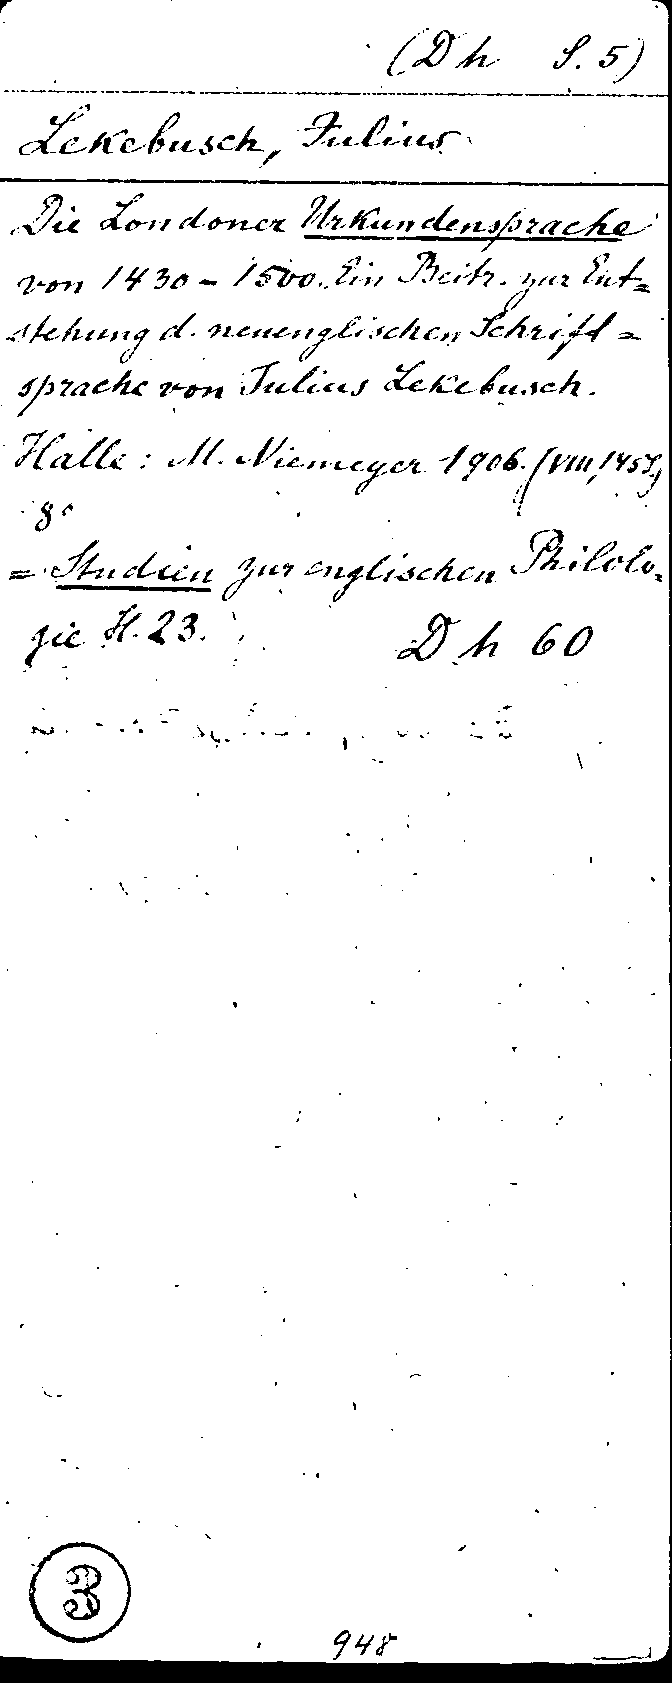 (Dh S. 5)
Lekebusch, Julius
Die Londoner Urkundensprache
von 1430 - 1500. Ein Beitr. zur Ent=
stehung d. neuenglischen Schrift=
sprache von Julius Lekebusch.
Halle: M. Niemeyer 1906. (VIII, 145 S.)
8°
= Studien zur englischen Philolo=
gie H. 23.
Dh 60
3
948